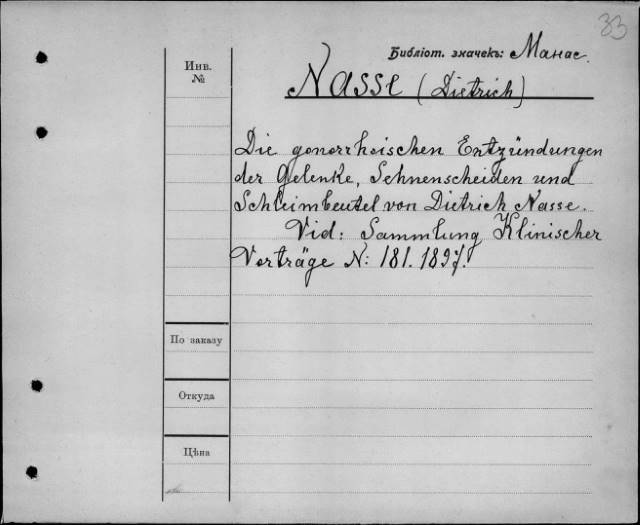 33
Библіот. значекъ: Манас.
Инв.
№
NASSE (Dietrich)
Die gonorrhoischen Entzündungen
der Gelenke, Sehnenscheiden und
Schleimbeutel von Dietrich Nasse.
Vid: Sammlung Klinischer
Vorträge N: 181. 1897.
По заказу
Откуда
Цѣна